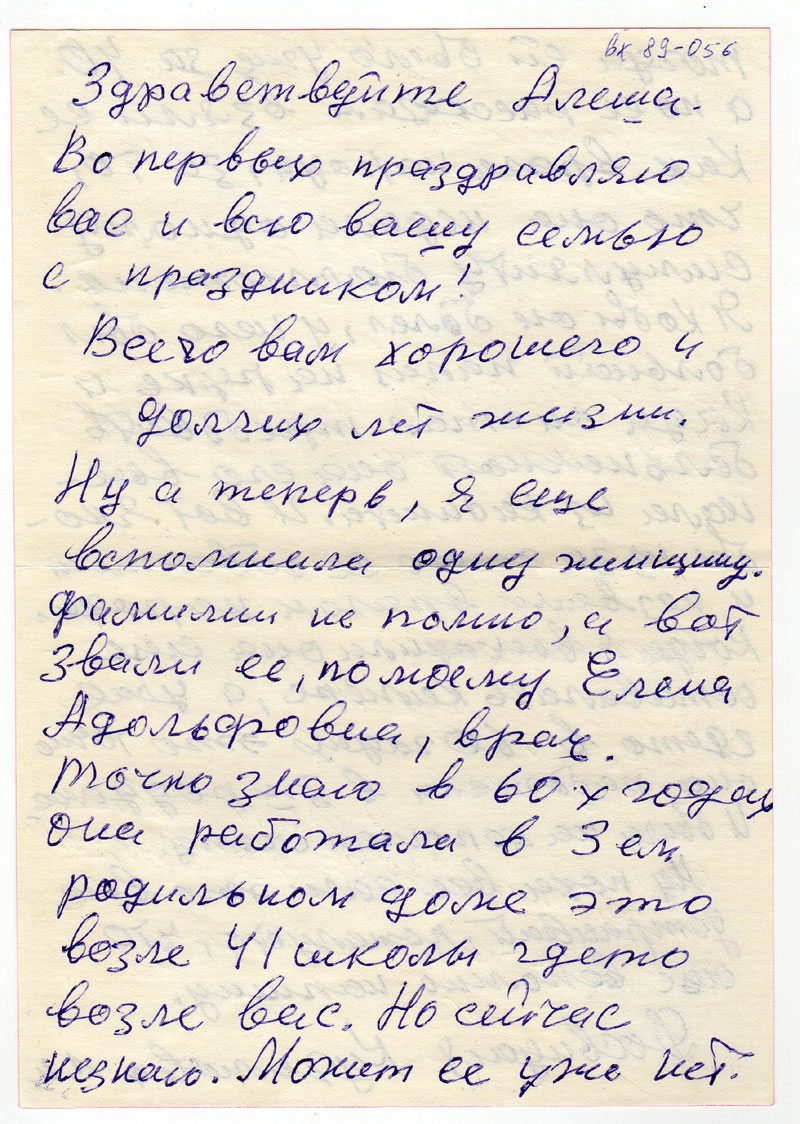 вх 89-056
Здравствуйте Алеша.
Во первых праздравляю
вас и всю вашу семью
с праздником!
Всего вам хорошего и
долгих лет жизни.
Ну а теперь, я еще
вспомнила одну женщину.
фамилии не помню, а вот
звали ее, помоему Елена
Адольфовна, врач.
Точно знаю в 60х годах
она работала в 3ем
родильном доме это
возле 41 школы гдето
возле вас. Но сейчас
незнаю. Может ее уже нет.